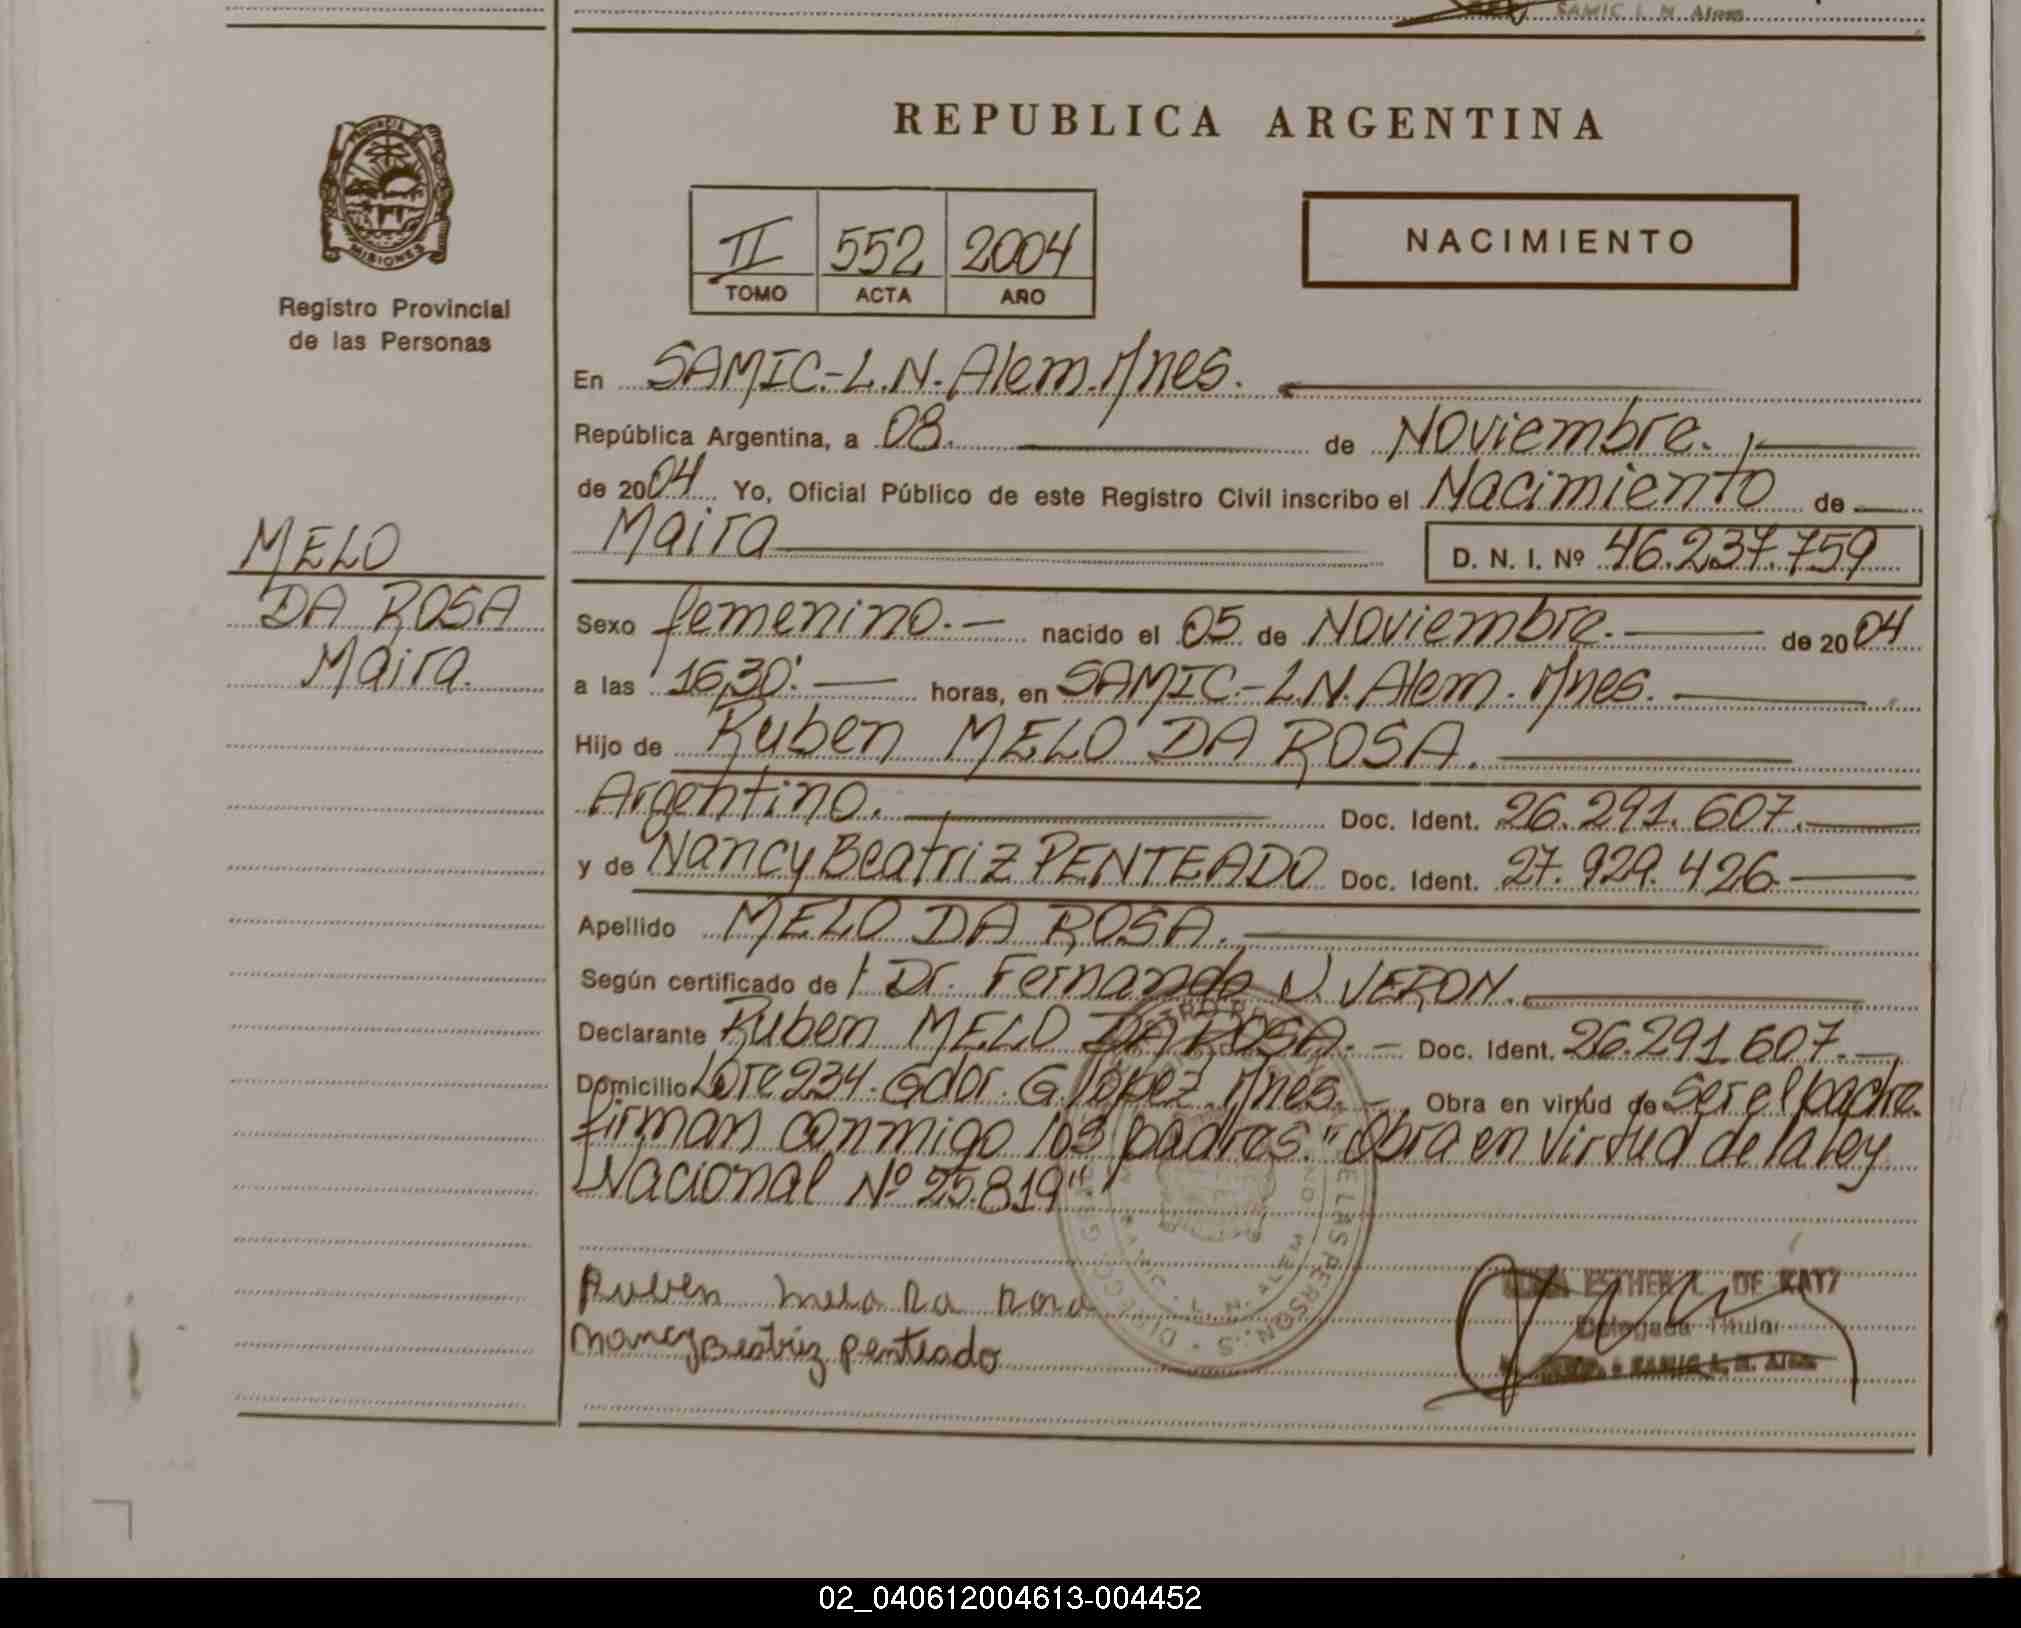 SAMIC L. N. Alem
REPUBLICA ARGENTINA
PROVINCIA
MISIONES
Registro Provincial
de las Personas
II 552 2004
TOMO ACTA AÑO
NACIMIENTO
En SAMIC.-L.N. Alem. Mnes.
República Argentina, a 08. de Noviembre.
de 2004 Yo, Oficial Público de este Registro Civil inscribo el Nacimiento de
Maira D. N. I. Nº 46.237.759
MELO
DA ROSA
Maira.
Sexo femenino.- nacido el 05 de Noviembre. de 2004
a las 16,30'. horas, en SAMIC.-L.N. Alem. Mnes.
Hijo de Ruben MELO DA ROSA.
Argentino. Doc. Ident. 26.291.607.
y de Nancy Beatriz PENTEADO Doc. Ident. 27.929.426
Apellido MELO DA ROSA.
Según certificado de Dr. Fernando J. VERON.
Declarante Ruben MELO DA ROSA.- Doc. Ident. 26.291.607.-
Domicilio Lote 234. Gdor. G. lopez. Mnes.- Obra en virtud de ser el padre.
firman conmigo los padres. "Obra en virtud de la ley
Nacional Nº 25.819"
Ruben melo Da rosa
nancy Beatriz penteado
ESTHER L. DE KATZ
Delegada Titular
SAMIC L. N. Alem
02_040612004613-004452